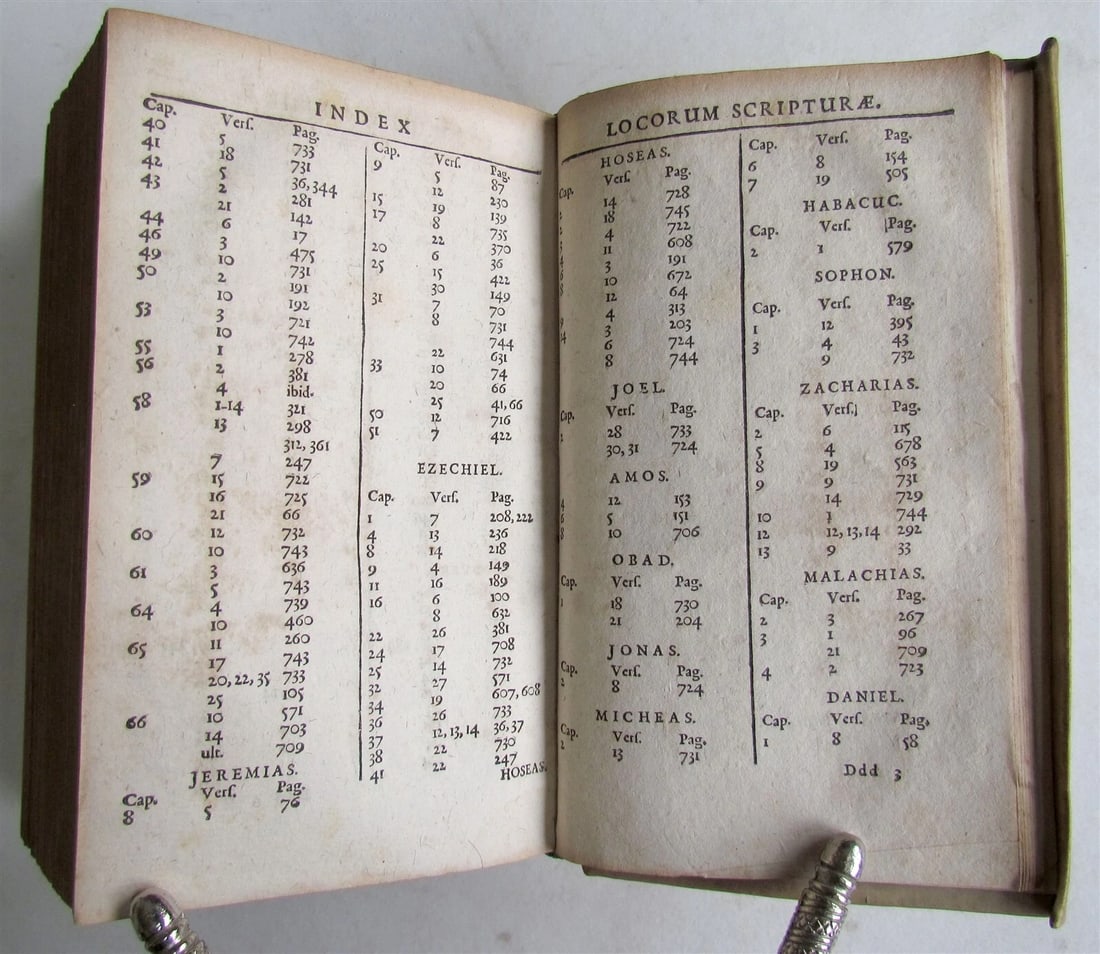 INDEX
Cap. Vers. Pag.
40 5 733
41 18 731
42 5 36, 344
43 2 281
21 142
44 6 17
46 3 475
49 10 731
50 2 191
10 192
53 3 721
10 742
55 1 278
56 2 381
4 ibid.
58 1-14 321
13 298
312, 361
7 247
59 15 722
16 725
21 66
60 12 732
10 743
61 3 636
5 743
64 4 739
10 460
65 11 260
17 743
20, 22, 35 733
25 105
66 10 571
14 703
ult. 709
JEREMIAS.
Cap. Vers. Pag.
8 5 76
Cap. Vers. Pag.
9 5 87
12 230
15 19 139
17 8 735
22 370
20 6 36
25 15 422
30 149
31 7 70
8 731
744
22 631
33 10 74
20 66
25 41, 66
50 12 716
51 7 422
EZECHIEL.
Cap. Vers. Pag.
1 7 208, 222
4 13 236
8 14 218
9 4 149
11 16 189
16 6 100
8 632
22 26 381
24 17 708
25 14 732
32 27 571
34 19 607, 608
36 26 733
37 12, 13, 14 36, 37
38 22 730
41 22 247
HOSEAS.
LOCORUM SCRIPTURÆ.
HOSEAS.
Cap. Vers. Pag.
14 728
18 745
4 722
11 608
3 191
10 672
12 64
4 313
3 203
6 724
8 744
JOEL.
Cap. Vers. Pag.
2 28 733
30, 31 724
AMOS.
4 12 153
6 5 151
8 10 706
OBAD.
Cap. Vers. Pag.
1 18 730
21 204
JONAS.
Cap. Vers. Pag.
2 8 724
MICHEAS.
Cap. Vers. Pag.
2 13 731
Cap. Vers. Pag.
6 8 154
7 19 505
HABACUC.
Cap. Vers. Pag.
2 1 579
SOPHON.
Cap. Vers. Pag.
1 12 395
3 4 43
9 732
ZACHARIAS.
Cap. Vers. Pag.
2 6 115
5 4 678
8 19 563
9 9 731
14 729
10 1 744
12 12, 13, 14 292
13 9 33
MALACHIAS.
Cap. Vers. Pag.
2 3 267
3 1 96
21 709
4 2 723
DANIEL.
Cap. Vers. Pag.
1 8 58
Ddd 3